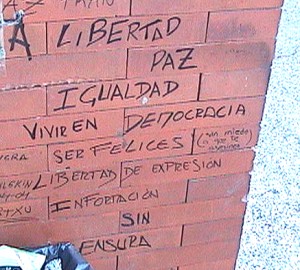 A LIBERTAD
PAZ
IGUALDAD
VIVIR EN DEMOCRACIA
SER FELICES (sin miedo
a que te
asesinen)
LIBERTAD DE EXPRESIÓN
INFORTACIÓN
SIN
ENSURA